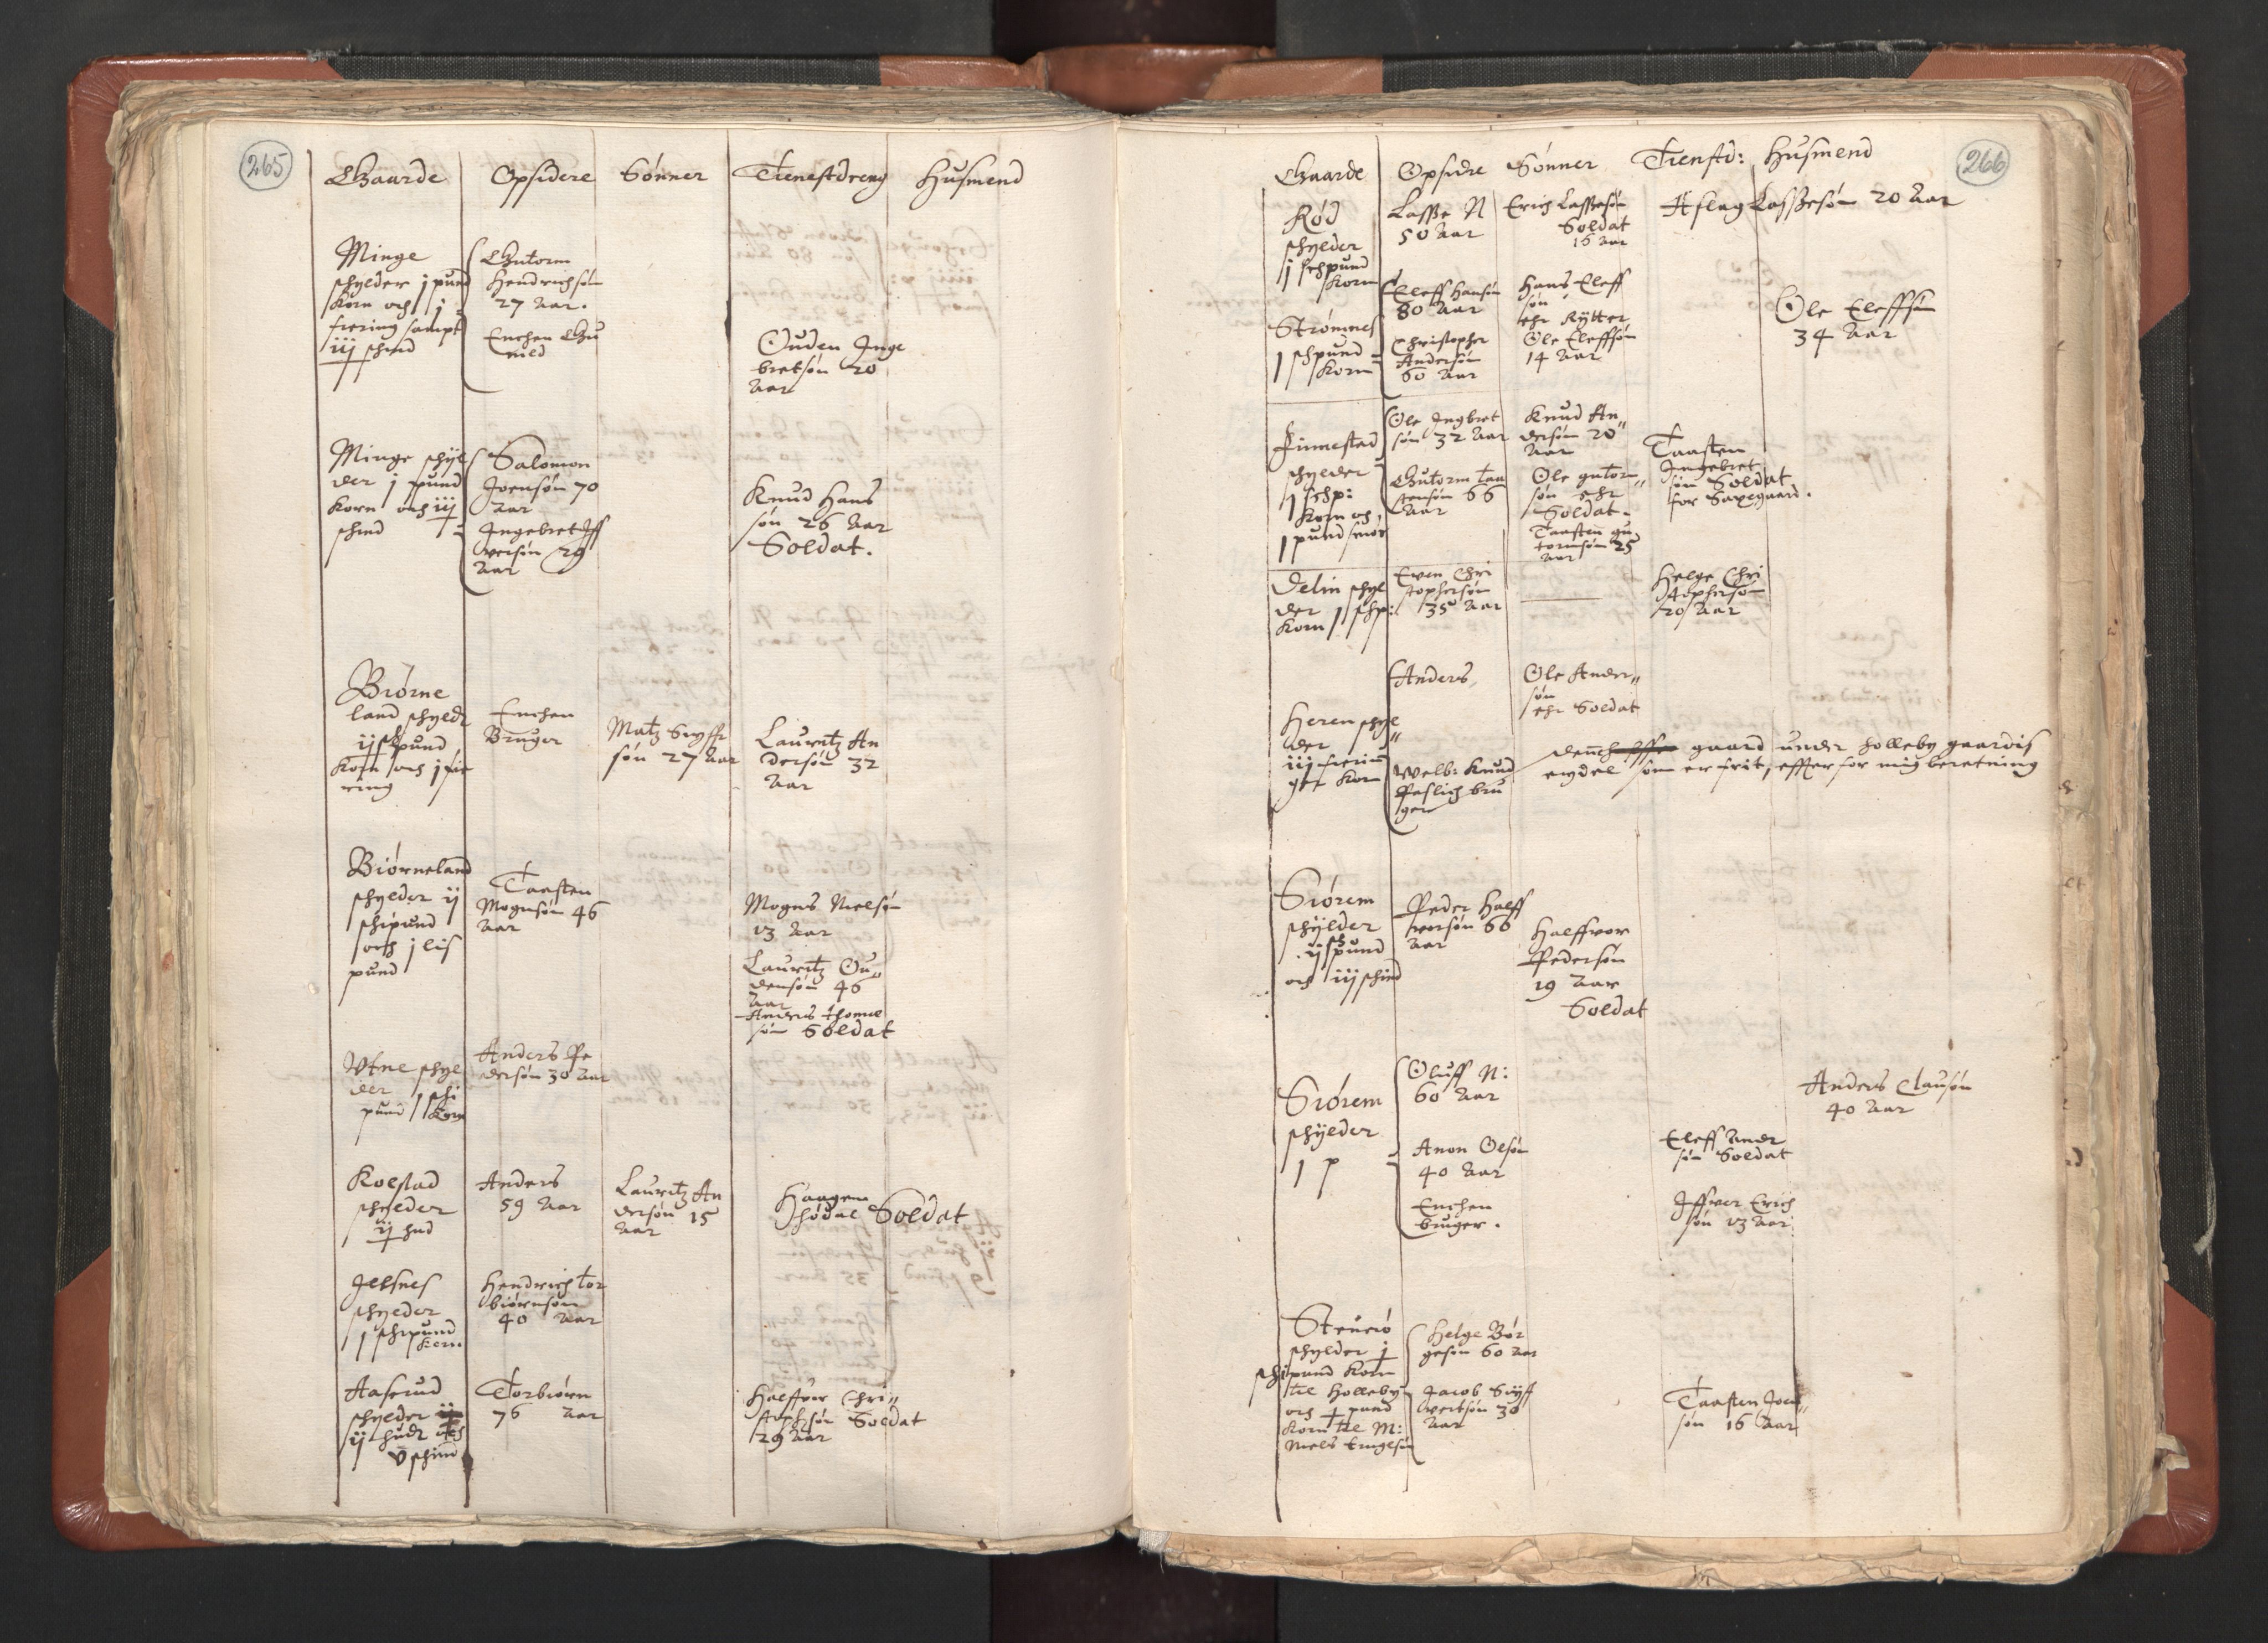 265
Gaarde Opsidere Sønner Tienestdreng Husmend
Minge
schylder j pund
Korn och j
fiering sampt
iij schind
Gutorm
Hendrichsøn
27 Aar.
Enchen Gu
nild
Ouden Inge
bretsøn 20
Aar
Minge schyl
der j pund
Korn och iij
schind
Salomon
Joensøn 70
Aar
Ingebret Iff
versøn 29
Aar
Knud Hans
søn 26 Aar
Soldat.
Biørne
land schyldr
ij schpund
Korn och j fie
ring
Enchen
Bruger
Matz Siffr
søn 27 Aar
Lauritz An
dersøn 32
Aar
Biørneland
schylder ij
schipund
och j lis
pund
Taasten
Mognsøn 46
Aar
Mogns Nielsøn
23 Aar
Lauritz Ou
densøn 46
Aar
Anders Thome
søn Soldat
Vtne schyl
der 1 schi
pund Korn
Anders Pe
dersøn 30 Aar
Kolstad
schylder
ij hud
Anders
59 Aar
Lauritz An
dersøn 15
Aar
Haagen
Soldat
Jelsnes
schylder
1 schpund
Korn
Hendrich Tor
biørnsøn
40 Aar
Aaserud
schylder
ij hudr och
v schind
Torbiørn
76 Aar
Halffvor Chri
stophersøn Soldat
29 Aar
266
Gaarde Opsidre Sønner Tienstd: Husmend
Rød
schylder
j schpund
Korn
Lasse N
50 Aar
Erich Lassesøn
Soldat
16 Aar
Aslag Lassesøn 20 Aar
Strømnes
1 schpund
Korn
Eleff Hansøn
80 Aar
Christopher
Andersøn
60 Aar
Hans Eleff
søn
ehr Rytter
Ole Eleffsøn
14 Aar
Ole Eleffsøn
34 Aar
Finnestad
schylder
1 schp:
Korn och
1 pund smør
Ole Ingbret
søn 32 Aar
Gutorm Taa
stensøn 66
Aar
Knud An
dersøn 20
Aar
Ole gutorm
søn ehr
Soldat.
Taasten gu
tormsøn 25
Aar
Taasten
Ingebret
søn Soldat
for Saxegaard.
Delin schyl
der 1 schp:
Korn
Even Chri
stophersøn
35 Aar
Helge Chri
stophersøn
20 Aar
Heren schyl
der
iij fierin
ger Korn
Anders
Ole Ander
søn
ehr Soldat
Welb: Knud
bru
ger
gaard under Holleby gaardis
eydel som er frit, effter for mig beretning
Siørem
schylder
ij schpund
och iij schind
Peder Halff
vorsøn 66
Aar
Halffvor
Pedersøn
19 Aar
Soldat
Siørem
schylder
1 p
Oluff N:
60 Aar
Anon Olsøn
40 Aar
Enchen
bruger.
Eleff Andr
søn Soldat
Iffver Erich
søn 23 Aar
Anders Clausøn
40 Aar
schylder j
schipund Korn
til Holleby
och pund
Korn til M:
Niels
Helge Bør
gesøn 60 Aar
Jacob Siff
vertsøn 30
Aar
Taasten Joen
søn 16 Aar